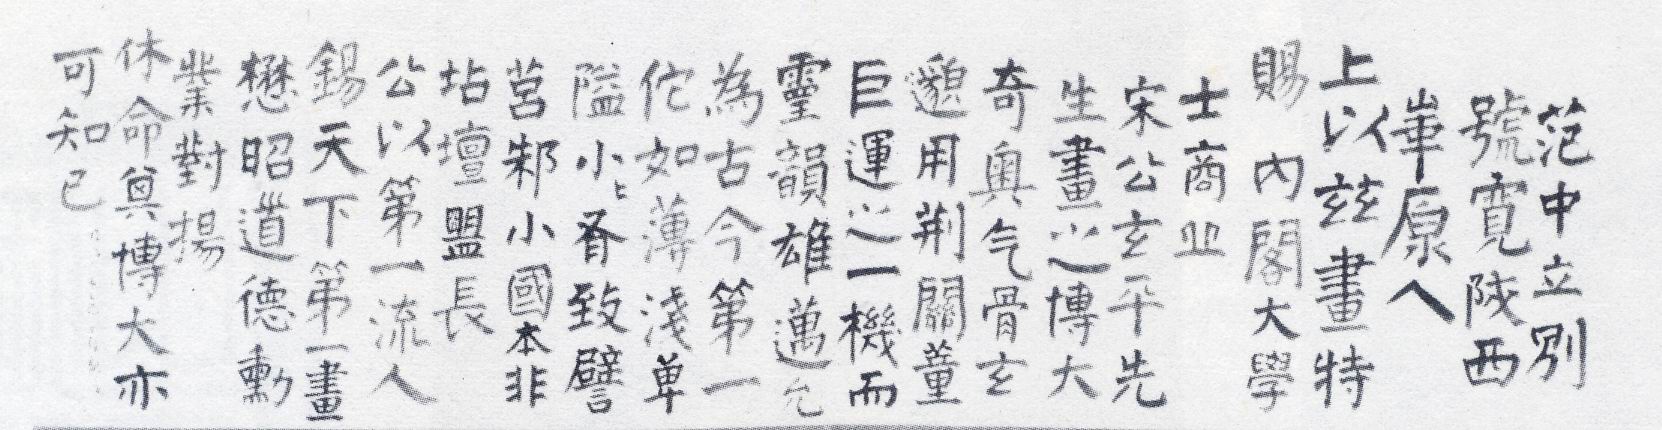 范中立別
號寬陝西
華原人
上以茲畫特
賜 內閣大學
士商丘
宋公玄平先
生畫之博大
奇奧气骨玄
邈用荊關董
巨運之一機而
靈韻雄邁允
為古今第一
佗如薄淺卑
隘小〻脊致譬
莒邾小國本非
坫壇盟長
公以第一流人
錫天下第一畫
懋昭道德勳
業對揚
休命與博大亦
可知已